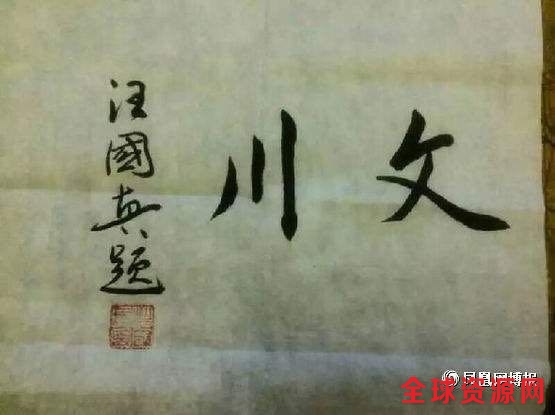 文川
汪國真题
凤凰网博报
全球资源网